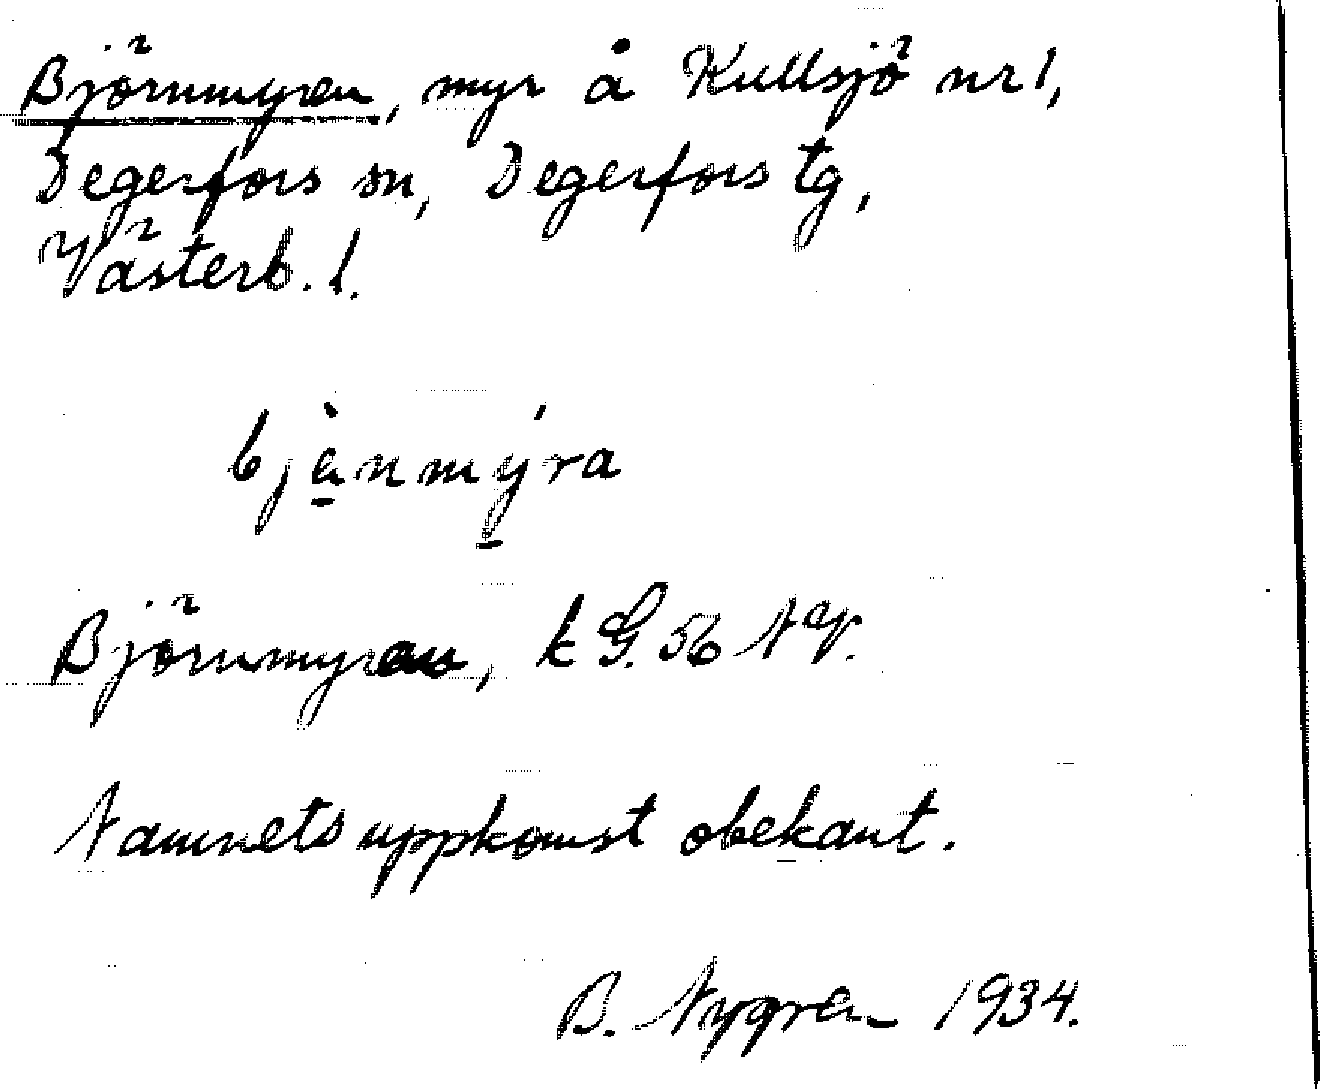 Björnmyren, myr å Kullsjö nr 1,
Degerfors sn, Degerfors tg,
Västerb. l.
bjànmýra
Björnmyran, k G. 56 NV.
Namnets uppkomst obekant.
B. Nygren 1934.